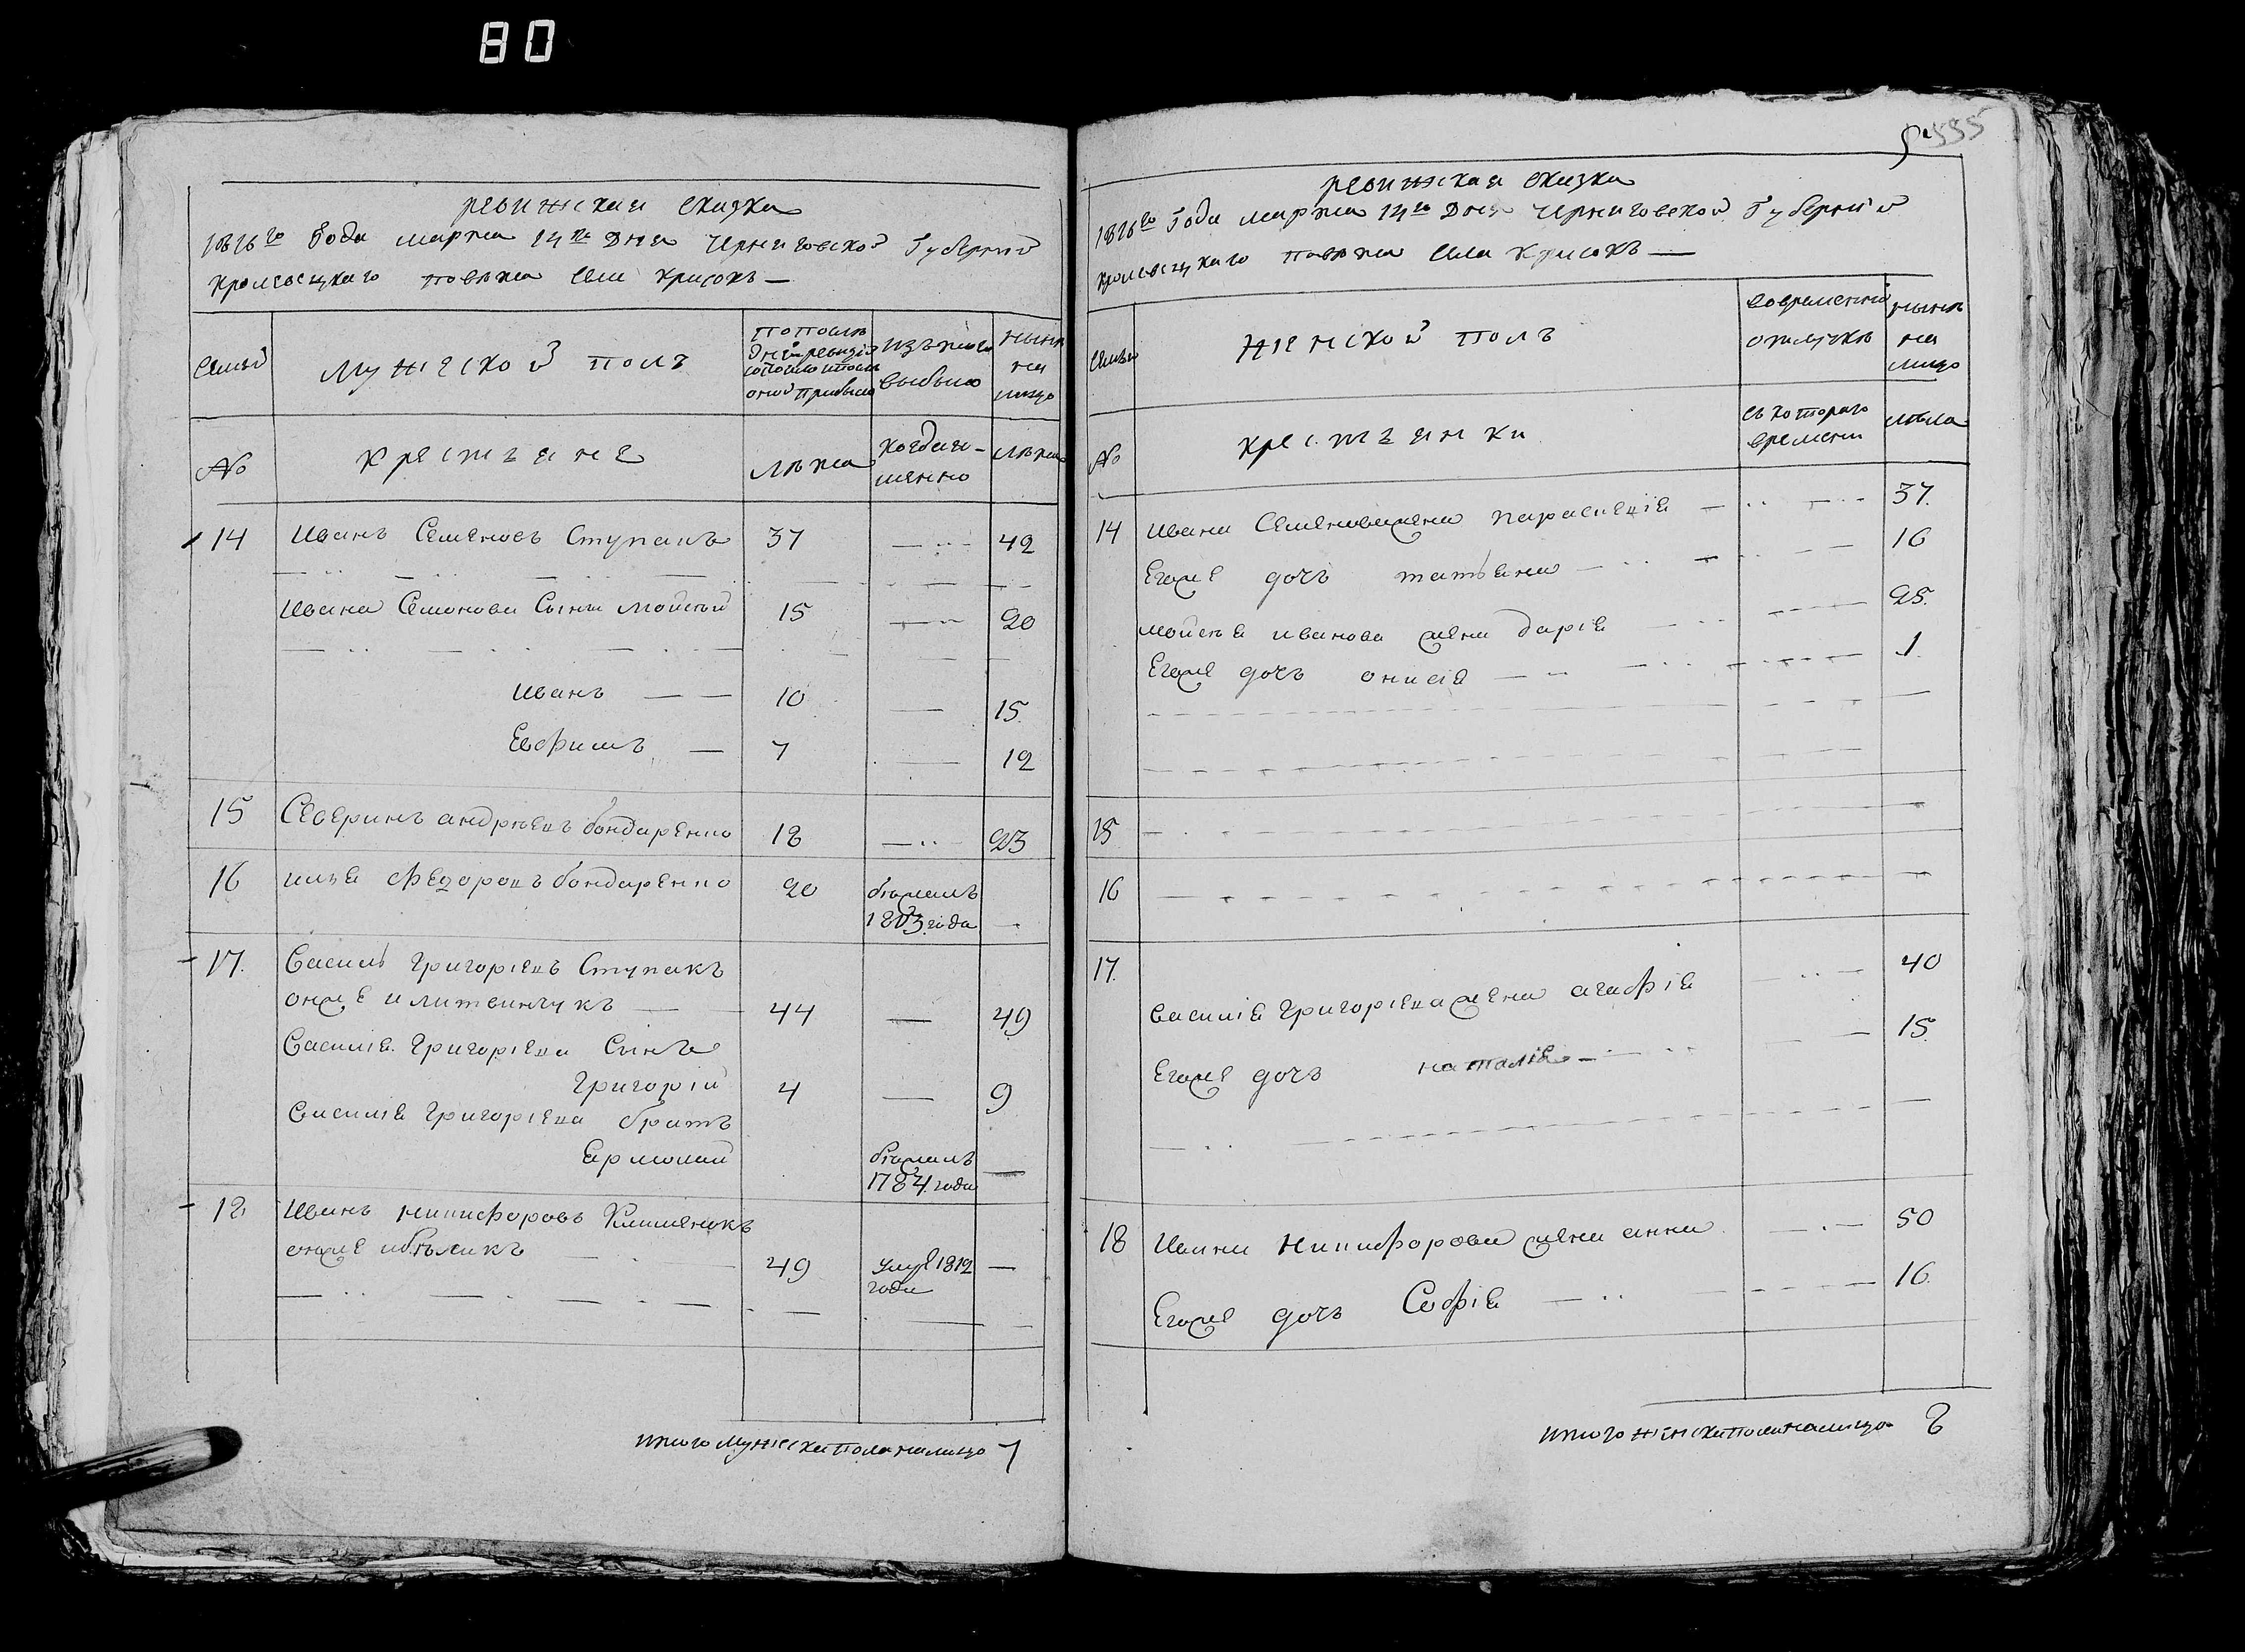 80
ревижская сказка
1816го года марта 14го дня Черниговской Губернии
кролевецкаго повета села крисокъ —
Семьи
Мужеской полъ
по последней ревизии состояло и после оной прибыло
изъ того выбыло
ныне на лицо
№
крестьяне
лета
когда именно
лета
14 Иванъ Семеновъ Ступакъ 37 — 42
Ивана Семенова Сынъ Мойсей 15 — 20
Иванъ — — 10 — 15
Евфимъ — 7 — 12
15 Северинъ андреевъ бондаренко 18 — 23
16 илья Федоровъ бондаренко 20 бежалъ
1813 года —
17. Василь Григориевъ Ступакъ
онже и литвинчукъ — 44 — 49
Василия Григориева Сынъ
Григорий 4 — 9
Василия Григориева братъ
Ермолай бежалъ
1784 года —
18 Иванъ никифоровъ Клименокъ
онже 49 умре 1812 —
года
итого мужеска пола налицо 7
555
ревижская сказка
1816го Года марта 14го Дня Черниговской Губернии
кролевецкаго повета села Крисокъ —
Семьи
Женской полъ
во временной отлучке
ныне на лицо
№
крестьянки
съ котораго времени
лета
14 Ивана Семенова жена параскевия — 37.
Егоже дочь татьяна — 16
мойсея иванова жена дария — 25.
Егоже дочь онисия — 1.
15
16
17.
Василия Григориева жена агафия — 40
Егоже дочь наталия — 15.
18 Ивана Никифорова жена анна — 50
Егоже дочь София — 16.
итого женска пола налицо 8